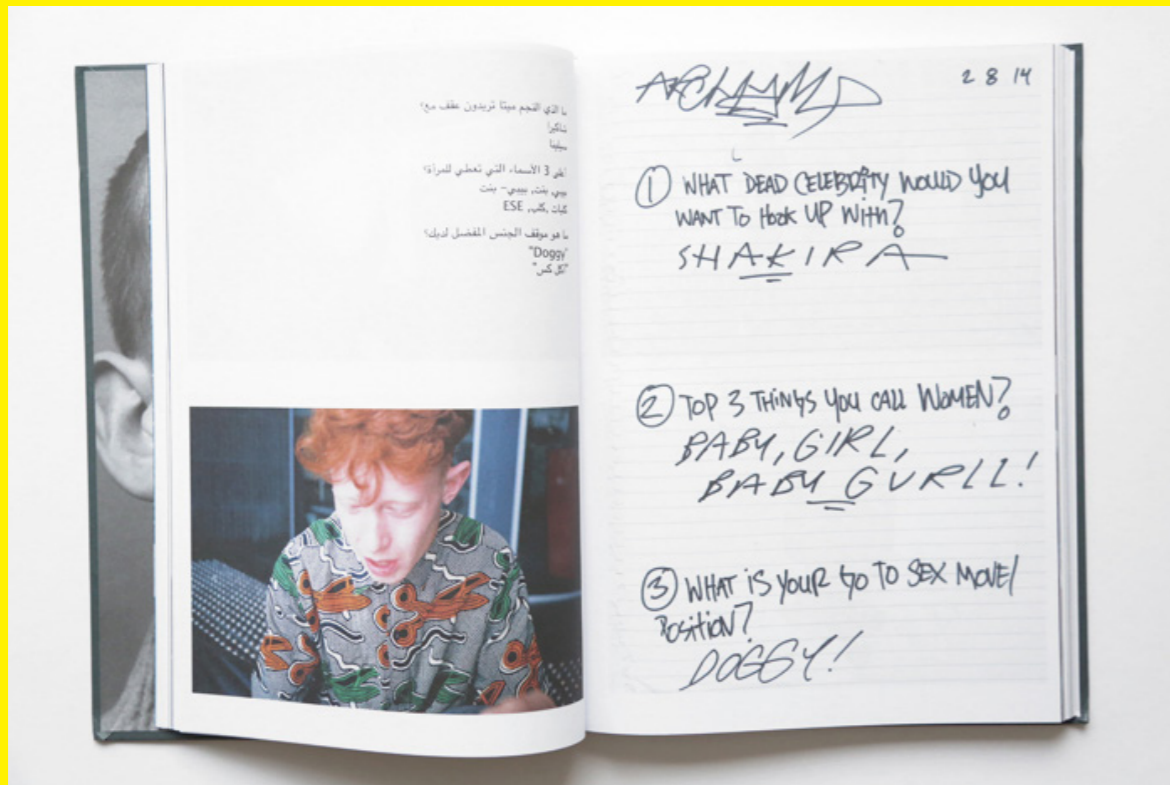 ما الذي النجم ميتا تريدون عقف مع؟
شاكيرا
سيلينا
3 الأسماء التي تعطي للمرأة؟
بيبي بنت, بيبي- بنت
ESE
ما هو موقف الجنس المفضل لديك؟
"Doggy"
"اكل كس"
2 8 14
① WHAT DEAD CELEBRITY WOULD YOU
WANT TO HOOK UP WITH?
SHAKIRA
② TOP 3 THINGS YOU CALL WOMEN?
BABY, GIRL,
BABY GURLL!
③ WHAT IS YOUR GO TO SEX MOVE/
POSITION?
DOGGY!